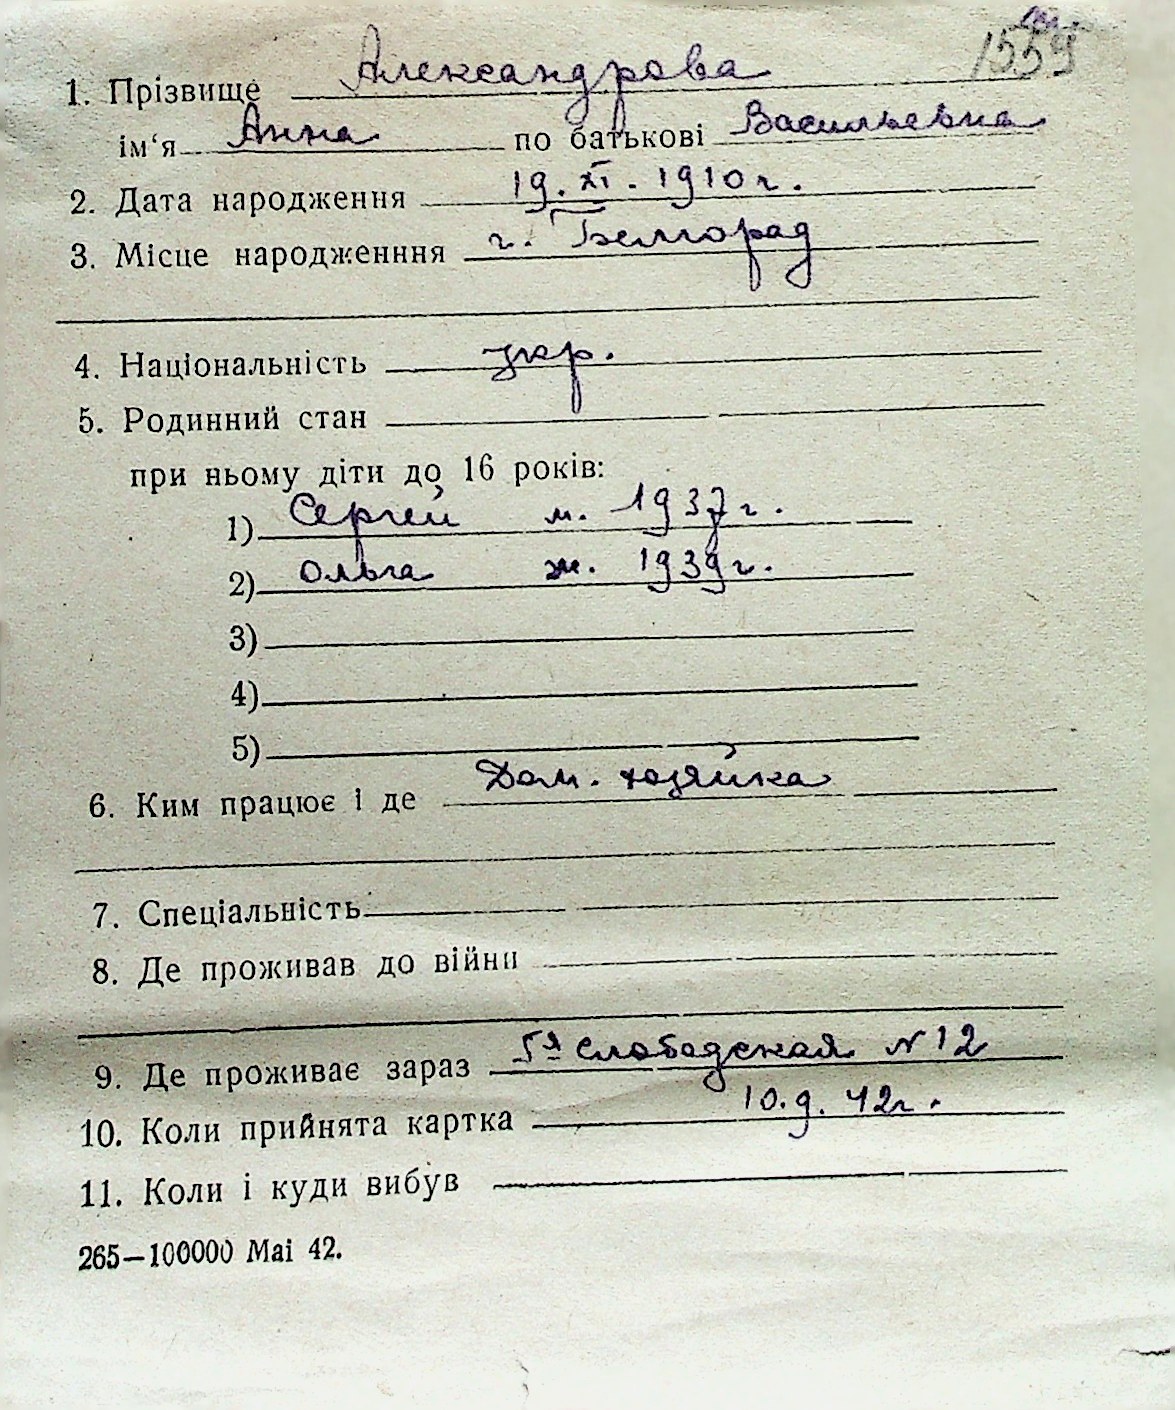 1559
1. Прізвище Александрова
ім‘я Анна по батькові Васильевна
2. Дата народження 19. XI. 1910 г.
3. Місце народженння г. Белгород
4. Національність укр.
5. Родинний стан
при ньому діти до 16 років:
1) Сергей м. 1937 г.
2) Ольга ж. 1939 г.
3)
4)
5)
6. Ким працює і де Дом. хозяйка
7. Спеціальність
8. Де проживав до війни
9. Де проживає зараз Слободская № 12
10. Коли прийнята картка 10. 9. 42 г.
11. Коли і куди вибув
265—100000 Mai 42.